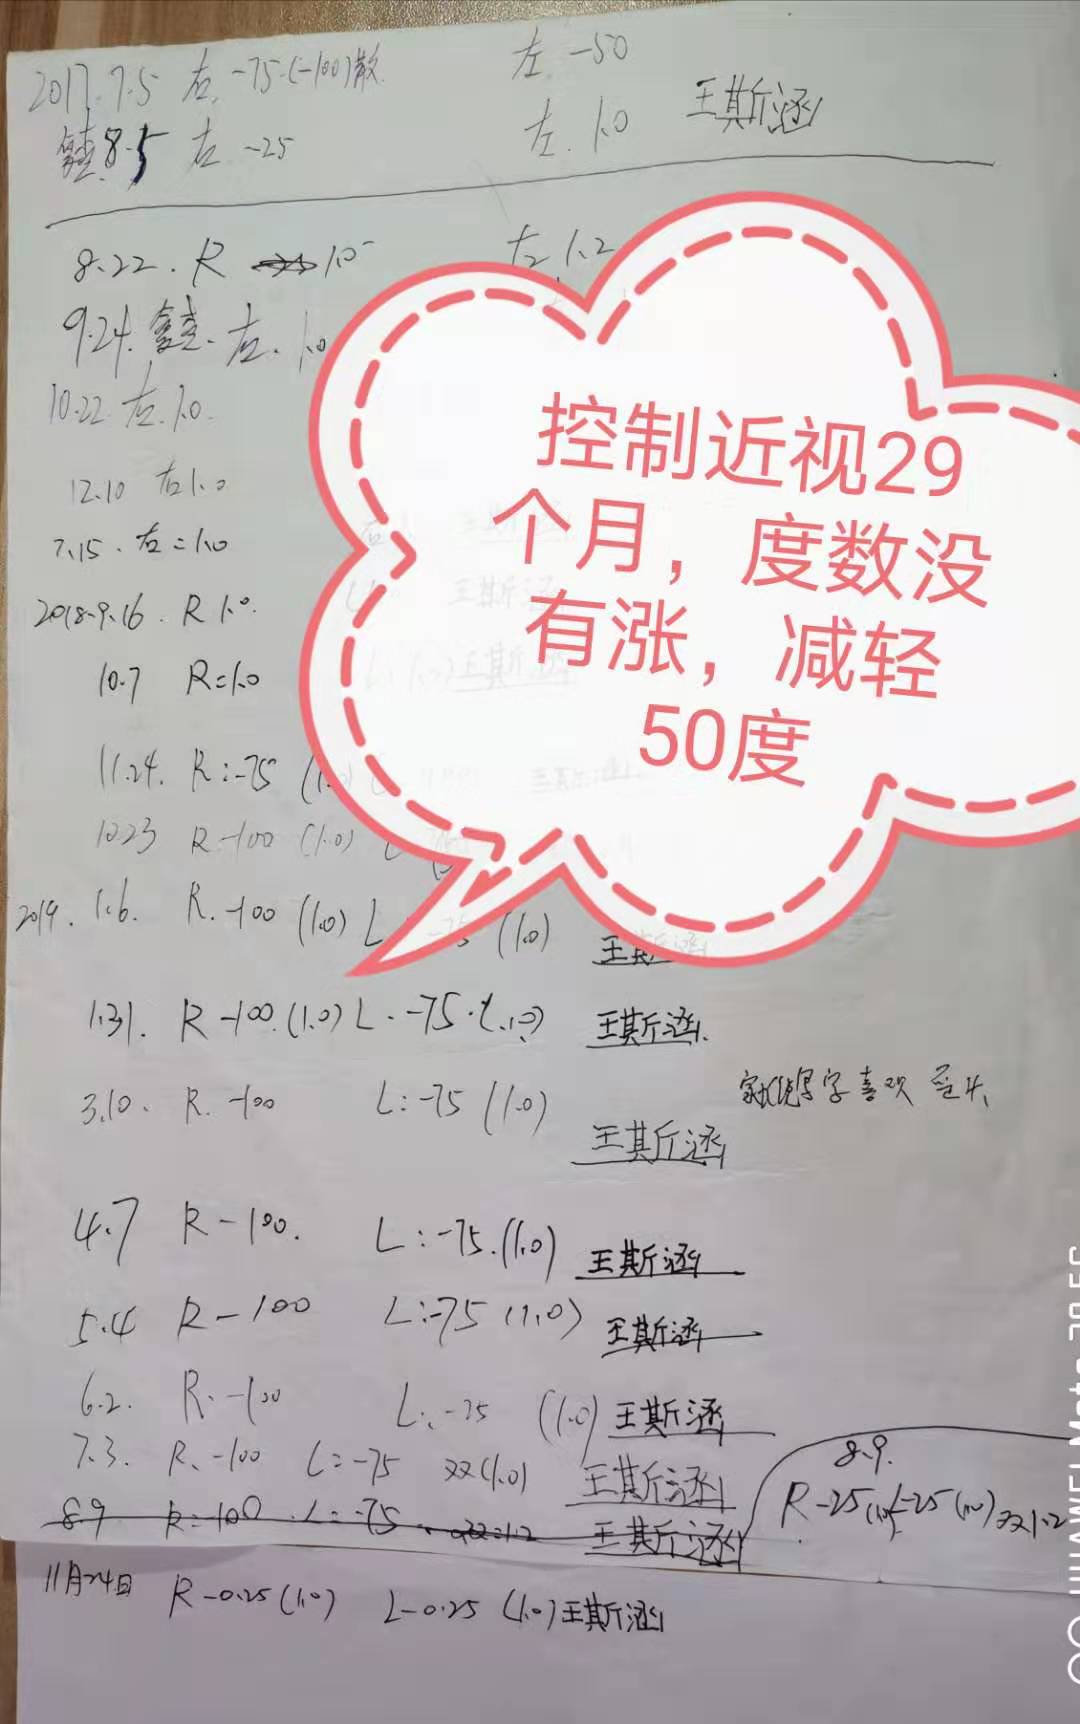 2017.7.5 右. -75.(-100)散. 左. -50
8.5 右 -25 左. 1.0 王斯涵
8.22. R 1.0 左 1.2
9.24. 右. 1.0
10.22. 右. 1.0.
12.10 右 1.0
7.15. 右=1.0
2018.9.16. R 1.0.
10.7 R=1.0
11.24. R:-75 (1.0)
10.23 R-100 (1.0)
控制近视29
个月，度数没
有涨，减轻
50度
2019. 1.6. R.-100 (1.0) L -75 (1.0) 王斯涵
1.31. R-100.(1.0) L.-75.(1.0) 王斯涵.
3.10. R.-100 L:-75 (1.0) 王斯涵
写字喜欢
4.7 R-100. L:-75.(1.0) 王斯涵
5.4 R-100 L:-75 (1.0) 王斯涵
6.2. R.-100 L:-75 (1.0) 王斯涵
7.3. R.-100 L=-75 双(1.0) 王斯涵
8.9 R=-100 L=-75. 双=1.2 王斯涵
8.9.
R-25(1.0) L-25(1.0) 双1.2
11月24日 R-0.25(1.0) L-0.25 (1.0) 王斯涵
HUAWEI Mate 20